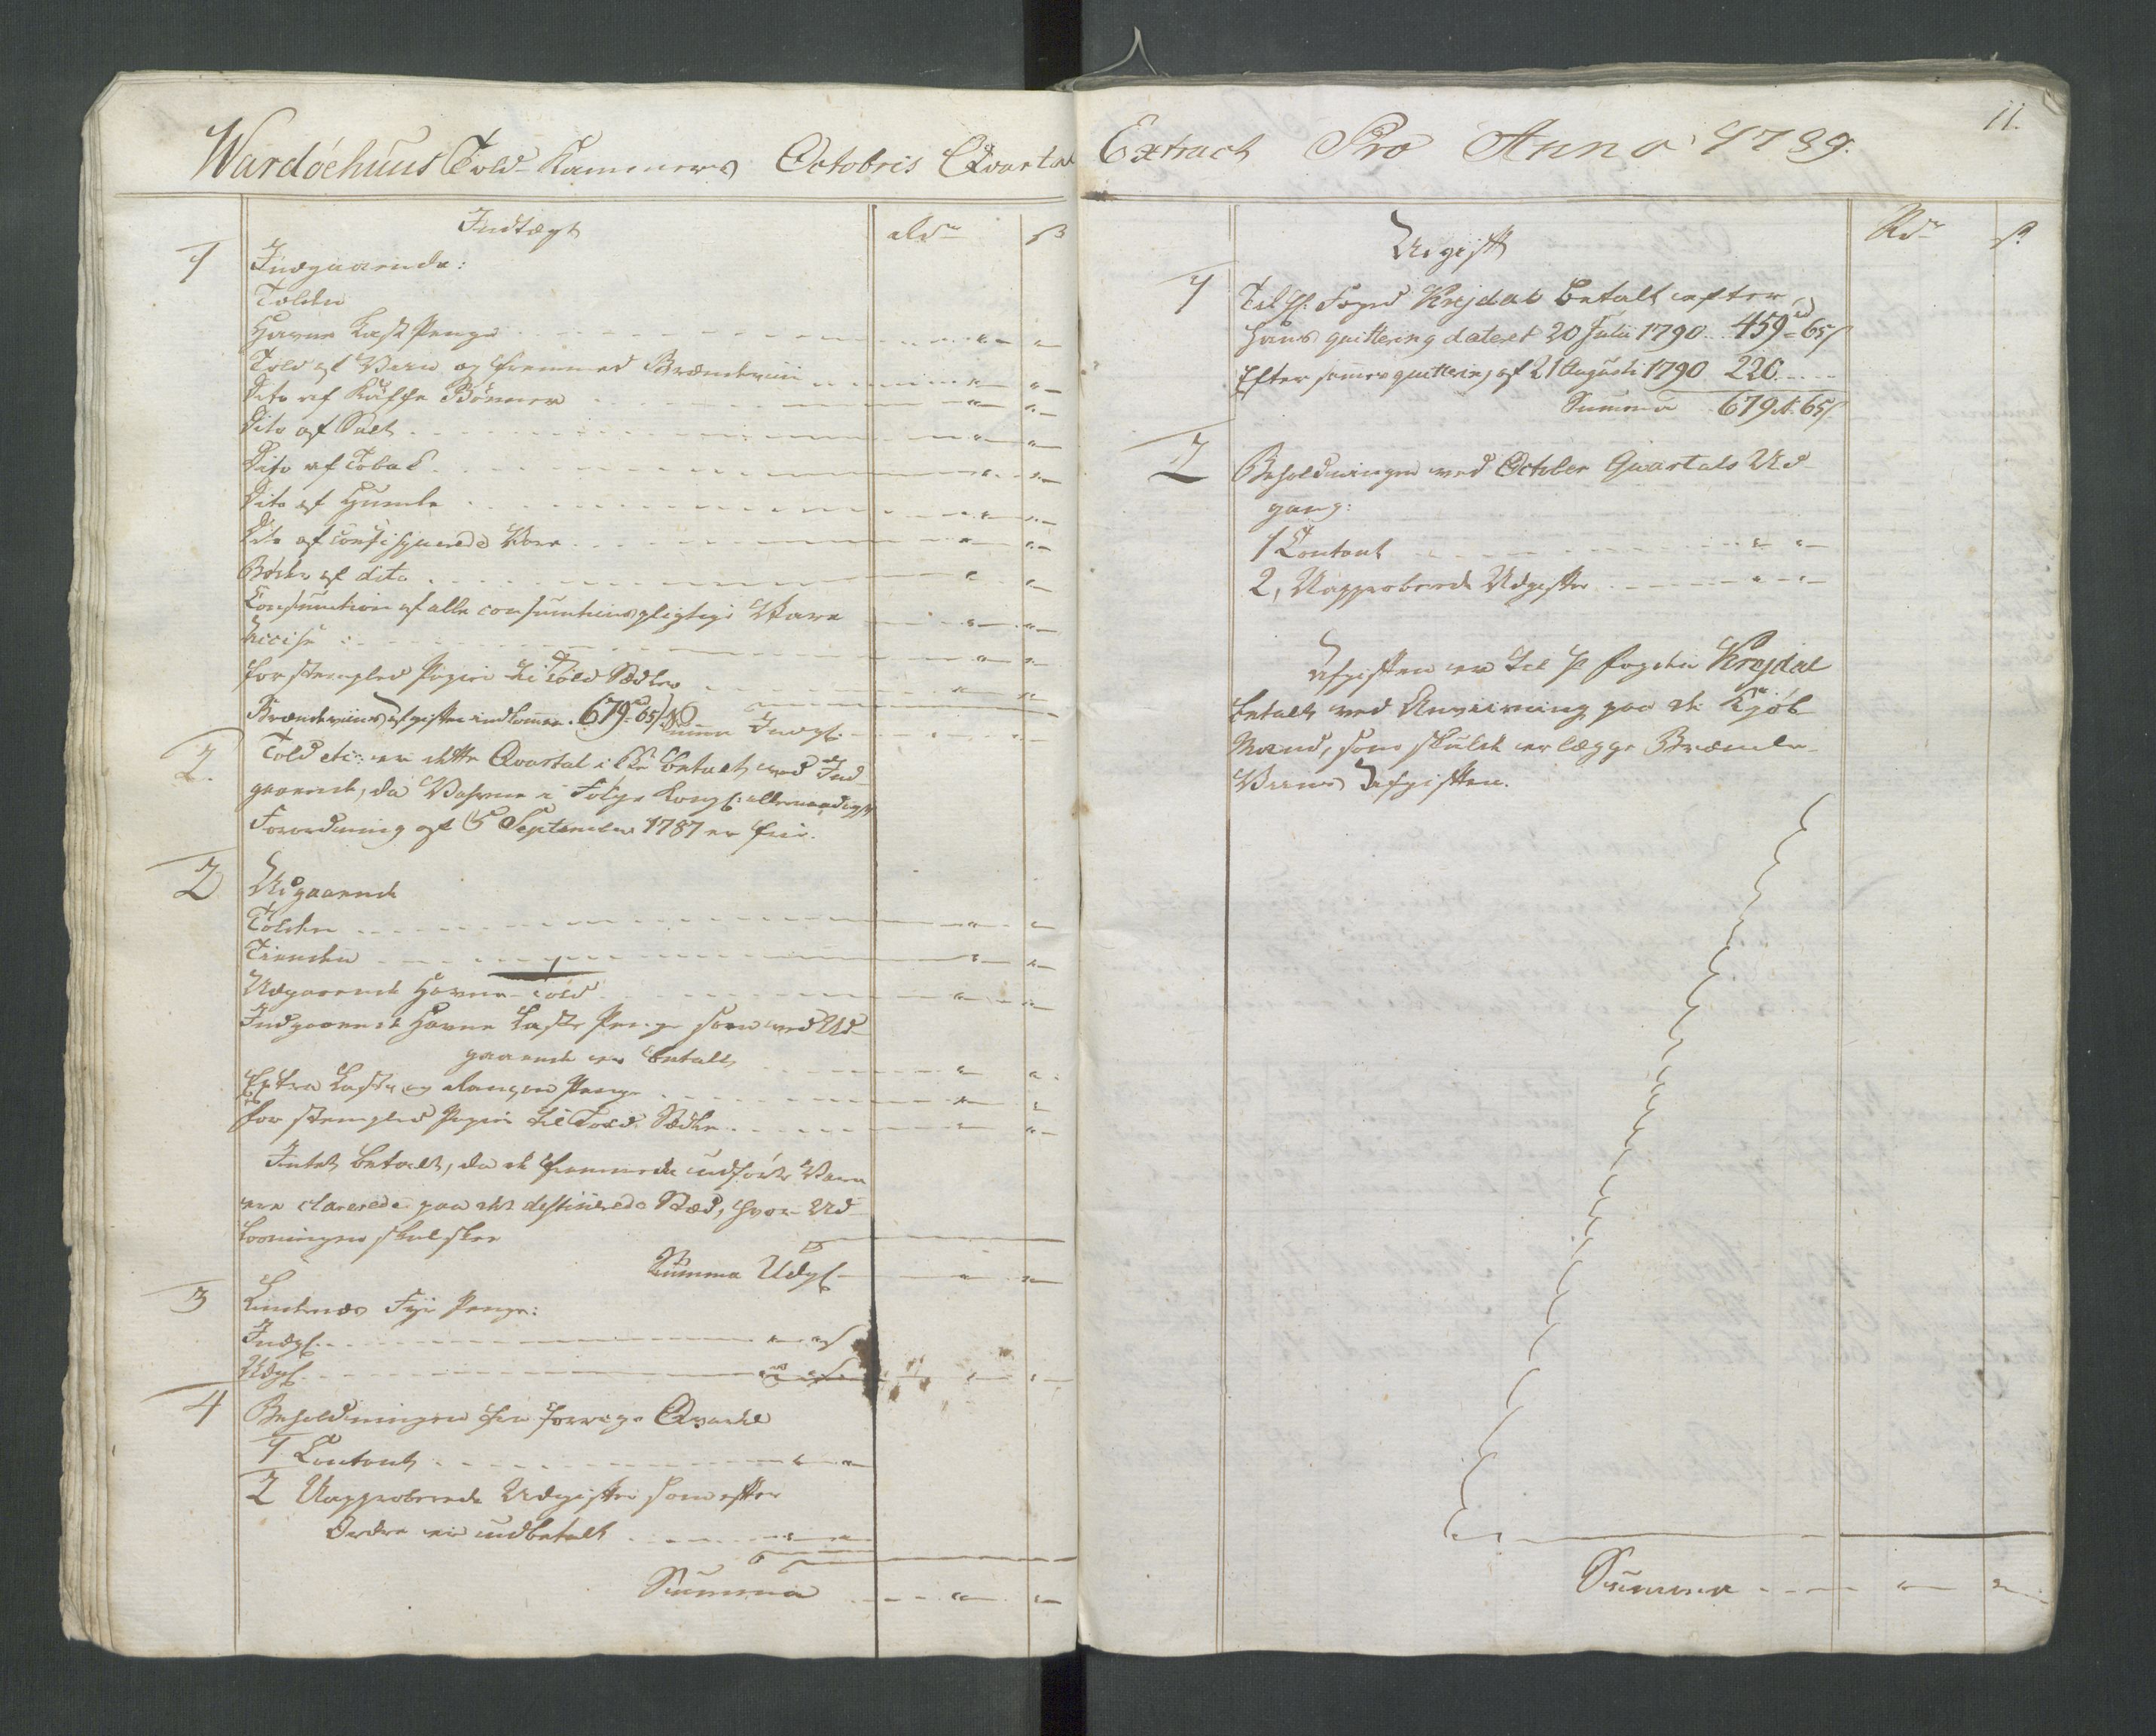 Wardöehuus Told-Kammers Octobris Qvartal
Indtægt Rdr ß
1 Indgaaende:
Tolden
Havne Last Penge
Told af Viin og fremmed Brændeviin
Dito af Kaffe Bönner
Dito af Salt
Dito af Tobak
Dito af Humle
Dito af confisqverede Vare
Böder af dito
Consumtion af alle consumtionspligtige Vare
Accise
for stemplet Papir til Told Sedler
Brændeviins afgiften indkommen 679 65/ Summa Indg:
2. Told etc: er dette Qvartal ikke betalt ved Ind-
gaaende, da Vahrene i Fölge Kongl: allernaadigste
Forordning af 5 September 1787 er frie.
2 Udgaaende
Tolden
Tienden
Udgaaende Havne-Told
Indgaaende Havne Laste Penge som ved Ud-
gaaende er betalt
Extra Laste og Penge
for stemplet Papir til Told Sedler
Intet betalt, da de fremmede udförte Vare
ere clarerede paa det destinerede Sted, hvor Ud-
losningen skal skee
Summa Udg:
3 Lindesnæs Fyr Penge:
Indg:
Udg:
4 Beholdningen fra forrige Qvartal
1 Contant
2 Uapproberede Udgifter som efter
Ordre er udbetalt
Summa
11.
Extract Pro Anno 1789.
Udgift Rdr ß
1 Til H: Foged Krejdal betalt efter
Hans qvittering dateret 20 Julii 1790 459 65/
Efter sammes qvittering af 21 Augusti 1790 220
Summa 679 65/
2 Beholdningen ved October Qvartals Ud-
gang:
1 Contant
2, Uapproberede Udgifter
Afgiften er til H: Fogden Krejdal
betalt ved Anviisning paa de Kjöb
Mænd, som skulde erlægge Brænde-
Viins Afgiften.
Summa